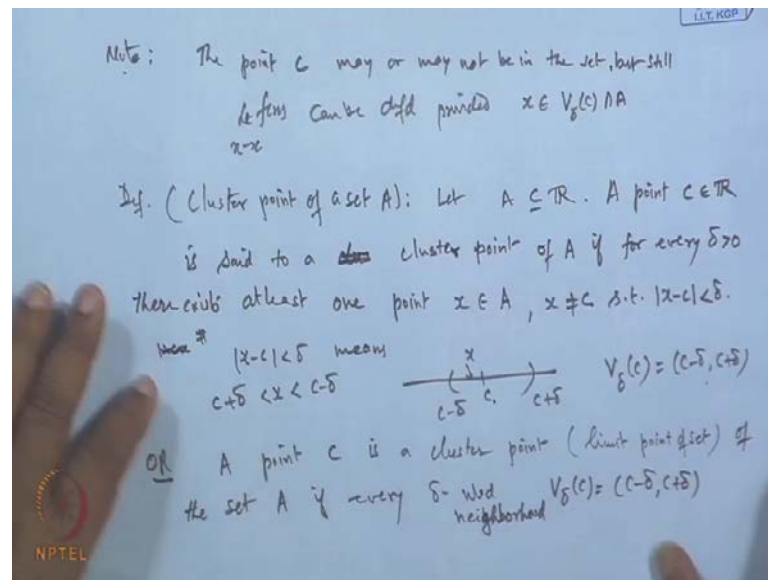 I.I.T. KGP
Note: The point c may or may not be in the set, but still
Lt f(x) can be defd provided x ∈ V_δ(c) ∩ A
x→x
Def. (Cluster point of a set A): Let A ⊆ ℝ. A point c ∈ ℝ
is said to a cluster point of A if for every δ>0
there exists atleast one point x ∈ A, x ≠ c s.t. |x-c|<δ.
|x-c|<δ means
x
c+δ < x < c-δ
V_δ(c) = (c-δ, c+δ)
c-δ c c+δ
OR A point c is a cluster point (limit point of set) of
the set A if every δ-nbd V_δ(c) = (c-δ, c+δ)
neighborhood
NPTEL